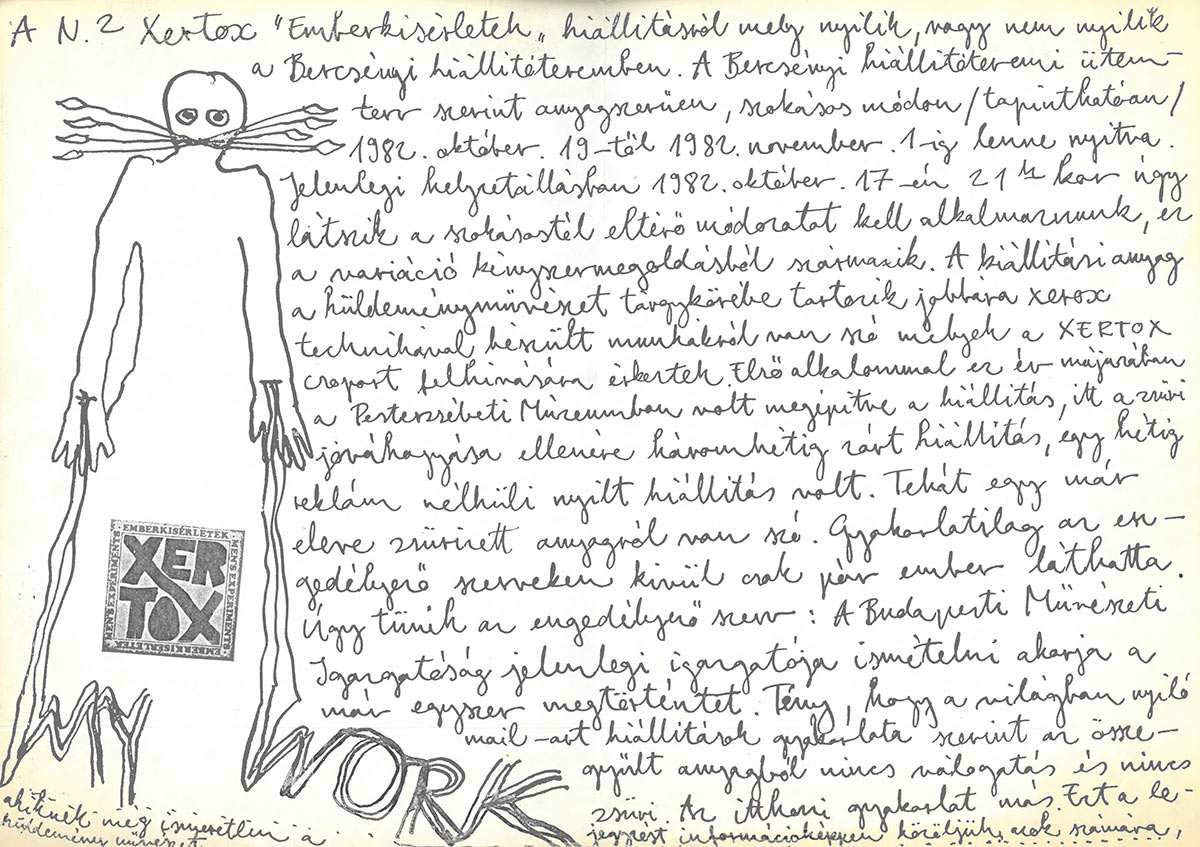 A N.2 Xertox "Emberkisérletek" kiállitásról mely nyilik, vagy nem nyilik
a Bercsényi kiállitóteremben. A Bercsényi kiállitótermi ütem-
terv szerint anyagszerüen, szokásos módon /tapinthatóan/
1982. október. 19-től 1982. november. 1-ig lenne nyitva.
Jelenlegi helyzetállásban 1982. október. 17-én 21 kor úgy
látszik a szokásostól eltérő módozatat kell alkalmaznunk, ez
a variáció kényszermegoldásból származik. A kiállitási anyag
a küldeményművészet tárgykörébe tartozik jobbára xerox
technikával készült munkákról van szó melyek a XERTOX
csoport felhivására érkeztek. Első alkalommal ez év májusában
a Pesterzsébeti Múzeumban volt megépitve a kiállitás, itt a zsüri
jóváhagyása ellenére háromhétig zárt kiállitás, egy hétig
reklám nélküli nyilt kiállitás volt. Tehát egy már
eleve zsürizett anyagról van szó. Gyakorlatilag az en-
gedélyező szerveken kivül csak pár ember láthatta.
Úgy tünik az engedélyező szerv: A Budapesti Művészeti
Igazgatóság jelenlegi igazgatója ismételni akarja a
már egyszer megtörténtet. Tény, hogy a világban nyiló
mail-art kiállitások gyakorlata szerint az össze-
gyült anyagból nincs válogatás és nincs
zsüri. Az itthoni gyakorlat más. Ezt a le-
jegyzést információképpen közöljük, azok számára,
akiknek még ismeretlen a
küldemény művészet
EMBERKISÉRLETEK
MEN'S EXPERIMENTS
XER
TOX
MEN'S EXPERIMENTS
EMBERKISÉRLETEK
MY
WORK